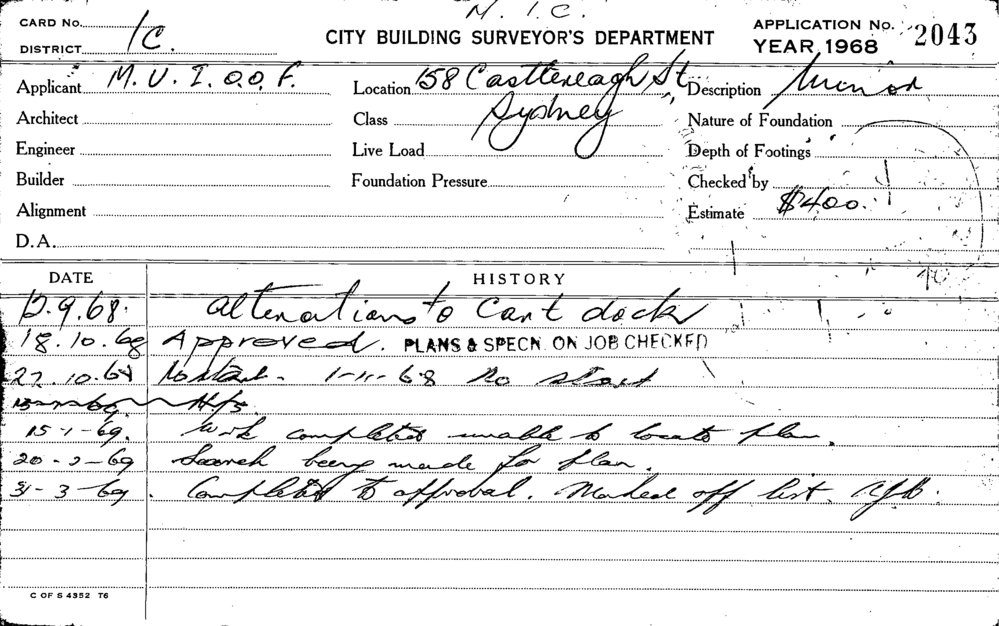 M. I. C.
CARD No.
DISTRICT 1C.
CITY BUILDING SURVEYOR'S DEPARTMENT
APPLICATION No. 2043
YEAR, 1968
Applicant M. U. I. O. O. F.
Location 158 Castlereagh St
Sydney
Description Minor
Architect
Class
Nature of Foundation
Engineer
Live Load
Depth of Footings
Builder
Foundation Pressure
Checked by
Alignment
Estimate $400.
D.A.
DATE HISTORY
12.9.68. Alterations to Cart dock
18.10.68 Approved. PLANS & SPECN. ON JOB CHECKED
22.10.68 No start - 1-11-68 No start
15-1-69. Work completed unable to locate plan.
20-2-69 Search being made for plan.
31-3-69. Completed to approval. Marked off list.
C OF S 4352 T6